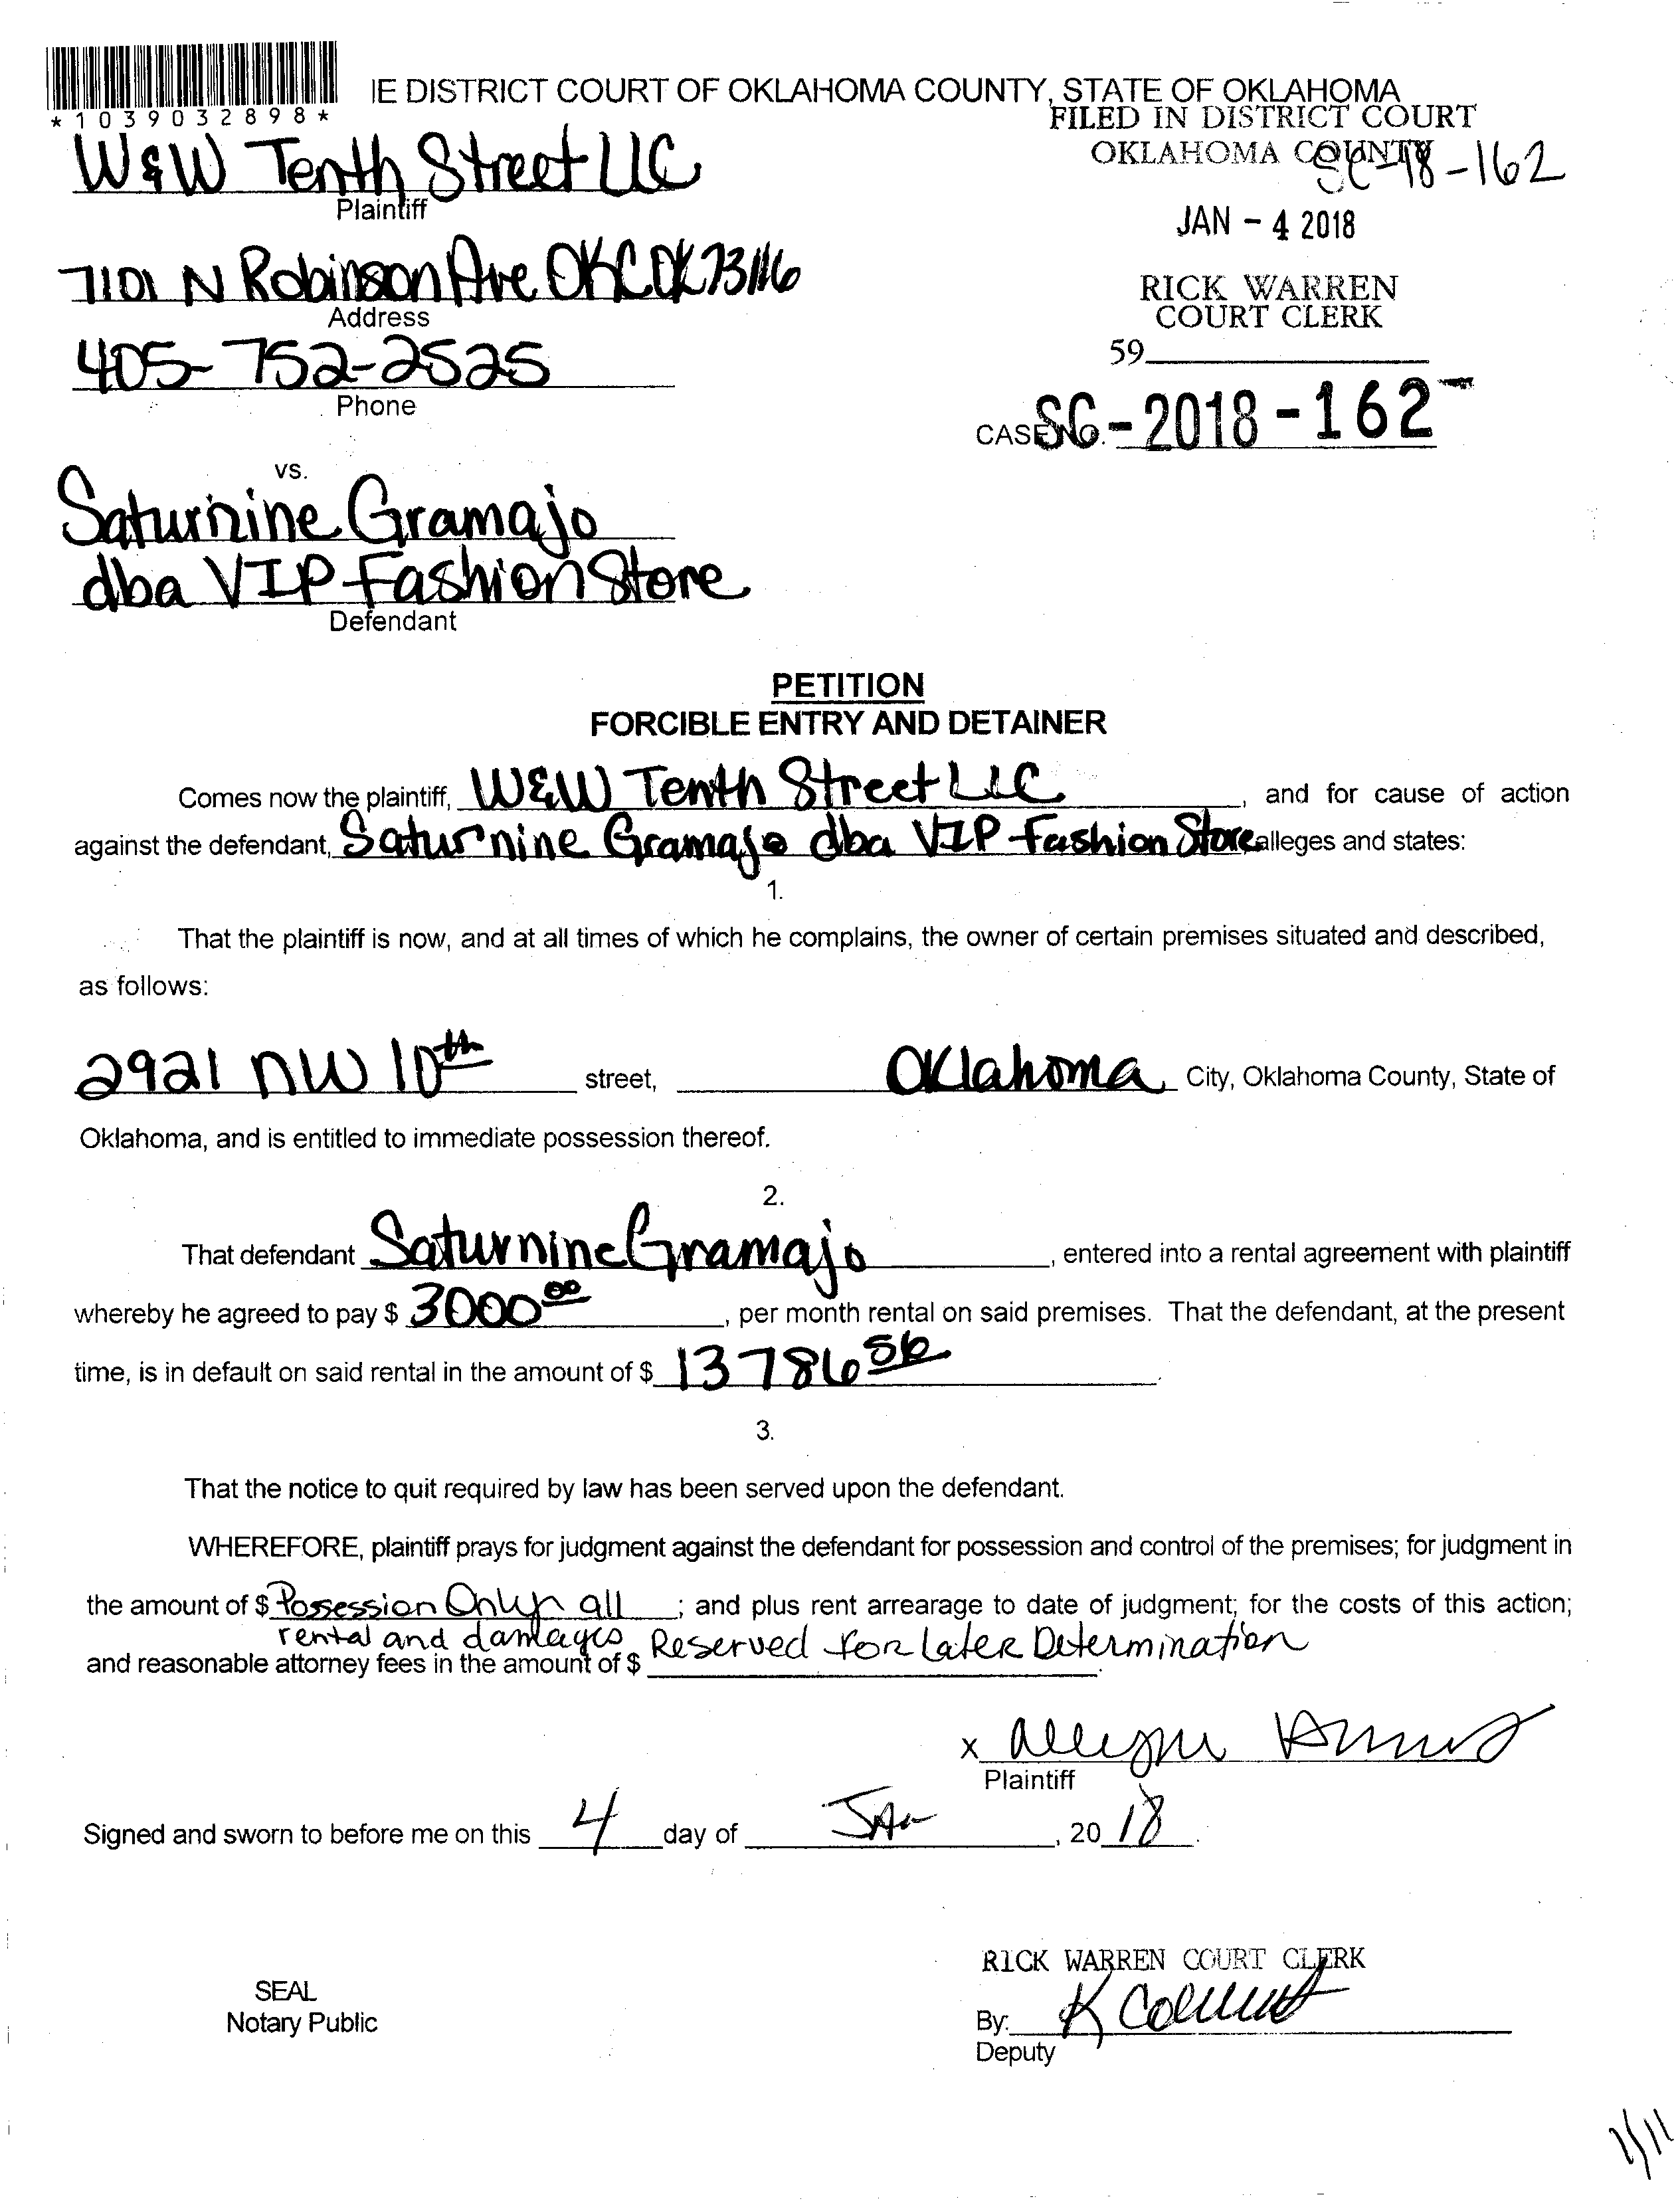 *1039032898*
IE DISTRICT COURT OF OKLAHOMA COUNTY, STATE OF OKLAHOMA
FILED IN DISTRICT COURT
OKLAHOMA COUNTY
SC-18-162
W&W Tenth Street LLC
Plaintiff
JAN - 4 2018
7101 N Robinson Ave OKC OK 73116
Address
RICK WARREN
COURT CLERK
405-752-2525
Phone
59
CASE NO. SC-2018-162
vs.
Saturnine Gramajo
dba VIP Fashion Store
Defendant
PETITION
FORCIBLE ENTRY AND DETAINER
Comes now the plaintiff, W&W Tenth Street LLC, and for cause of action
against the defendant, Saturnine Gramajo dba VIP Fashion Store alleges and states:
1.
That the plaintiff is now, and at all times of which he complains, the owner of certain premises situated and described,
as follows:
2921 NW 10th street, Oklahoma City, Oklahoma County, State of
Oklahoma, and is entitled to immediate possession thereof.
2.
That defendant Saturnine Gramajo, entered into a rental agreement with plaintiff
whereby he agreed to pay $ 3000 00, per month rental on said premises. That the defendant, at the present
time, is in default on said rental in the amount of $ 13786 56.
3.
That the notice to quit required by law has been served upon the defendant.
WHEREFORE, plaintiff prays for judgment against the defendant for possession and control of the premises; for judgment in
the amount of $ Possession Only all; and plus rent arrearage to date of judgment; for the costs of this action;
rental and damages Reserved for Later Determination
and reasonable attorney fees in the amount of $
x
Plaintiff
Signed and sworn to before me on this 4 day of Jan, 20 18.
RICK WARREN COURT CLERK
SEAL
Notary Public
By: K
Deputy